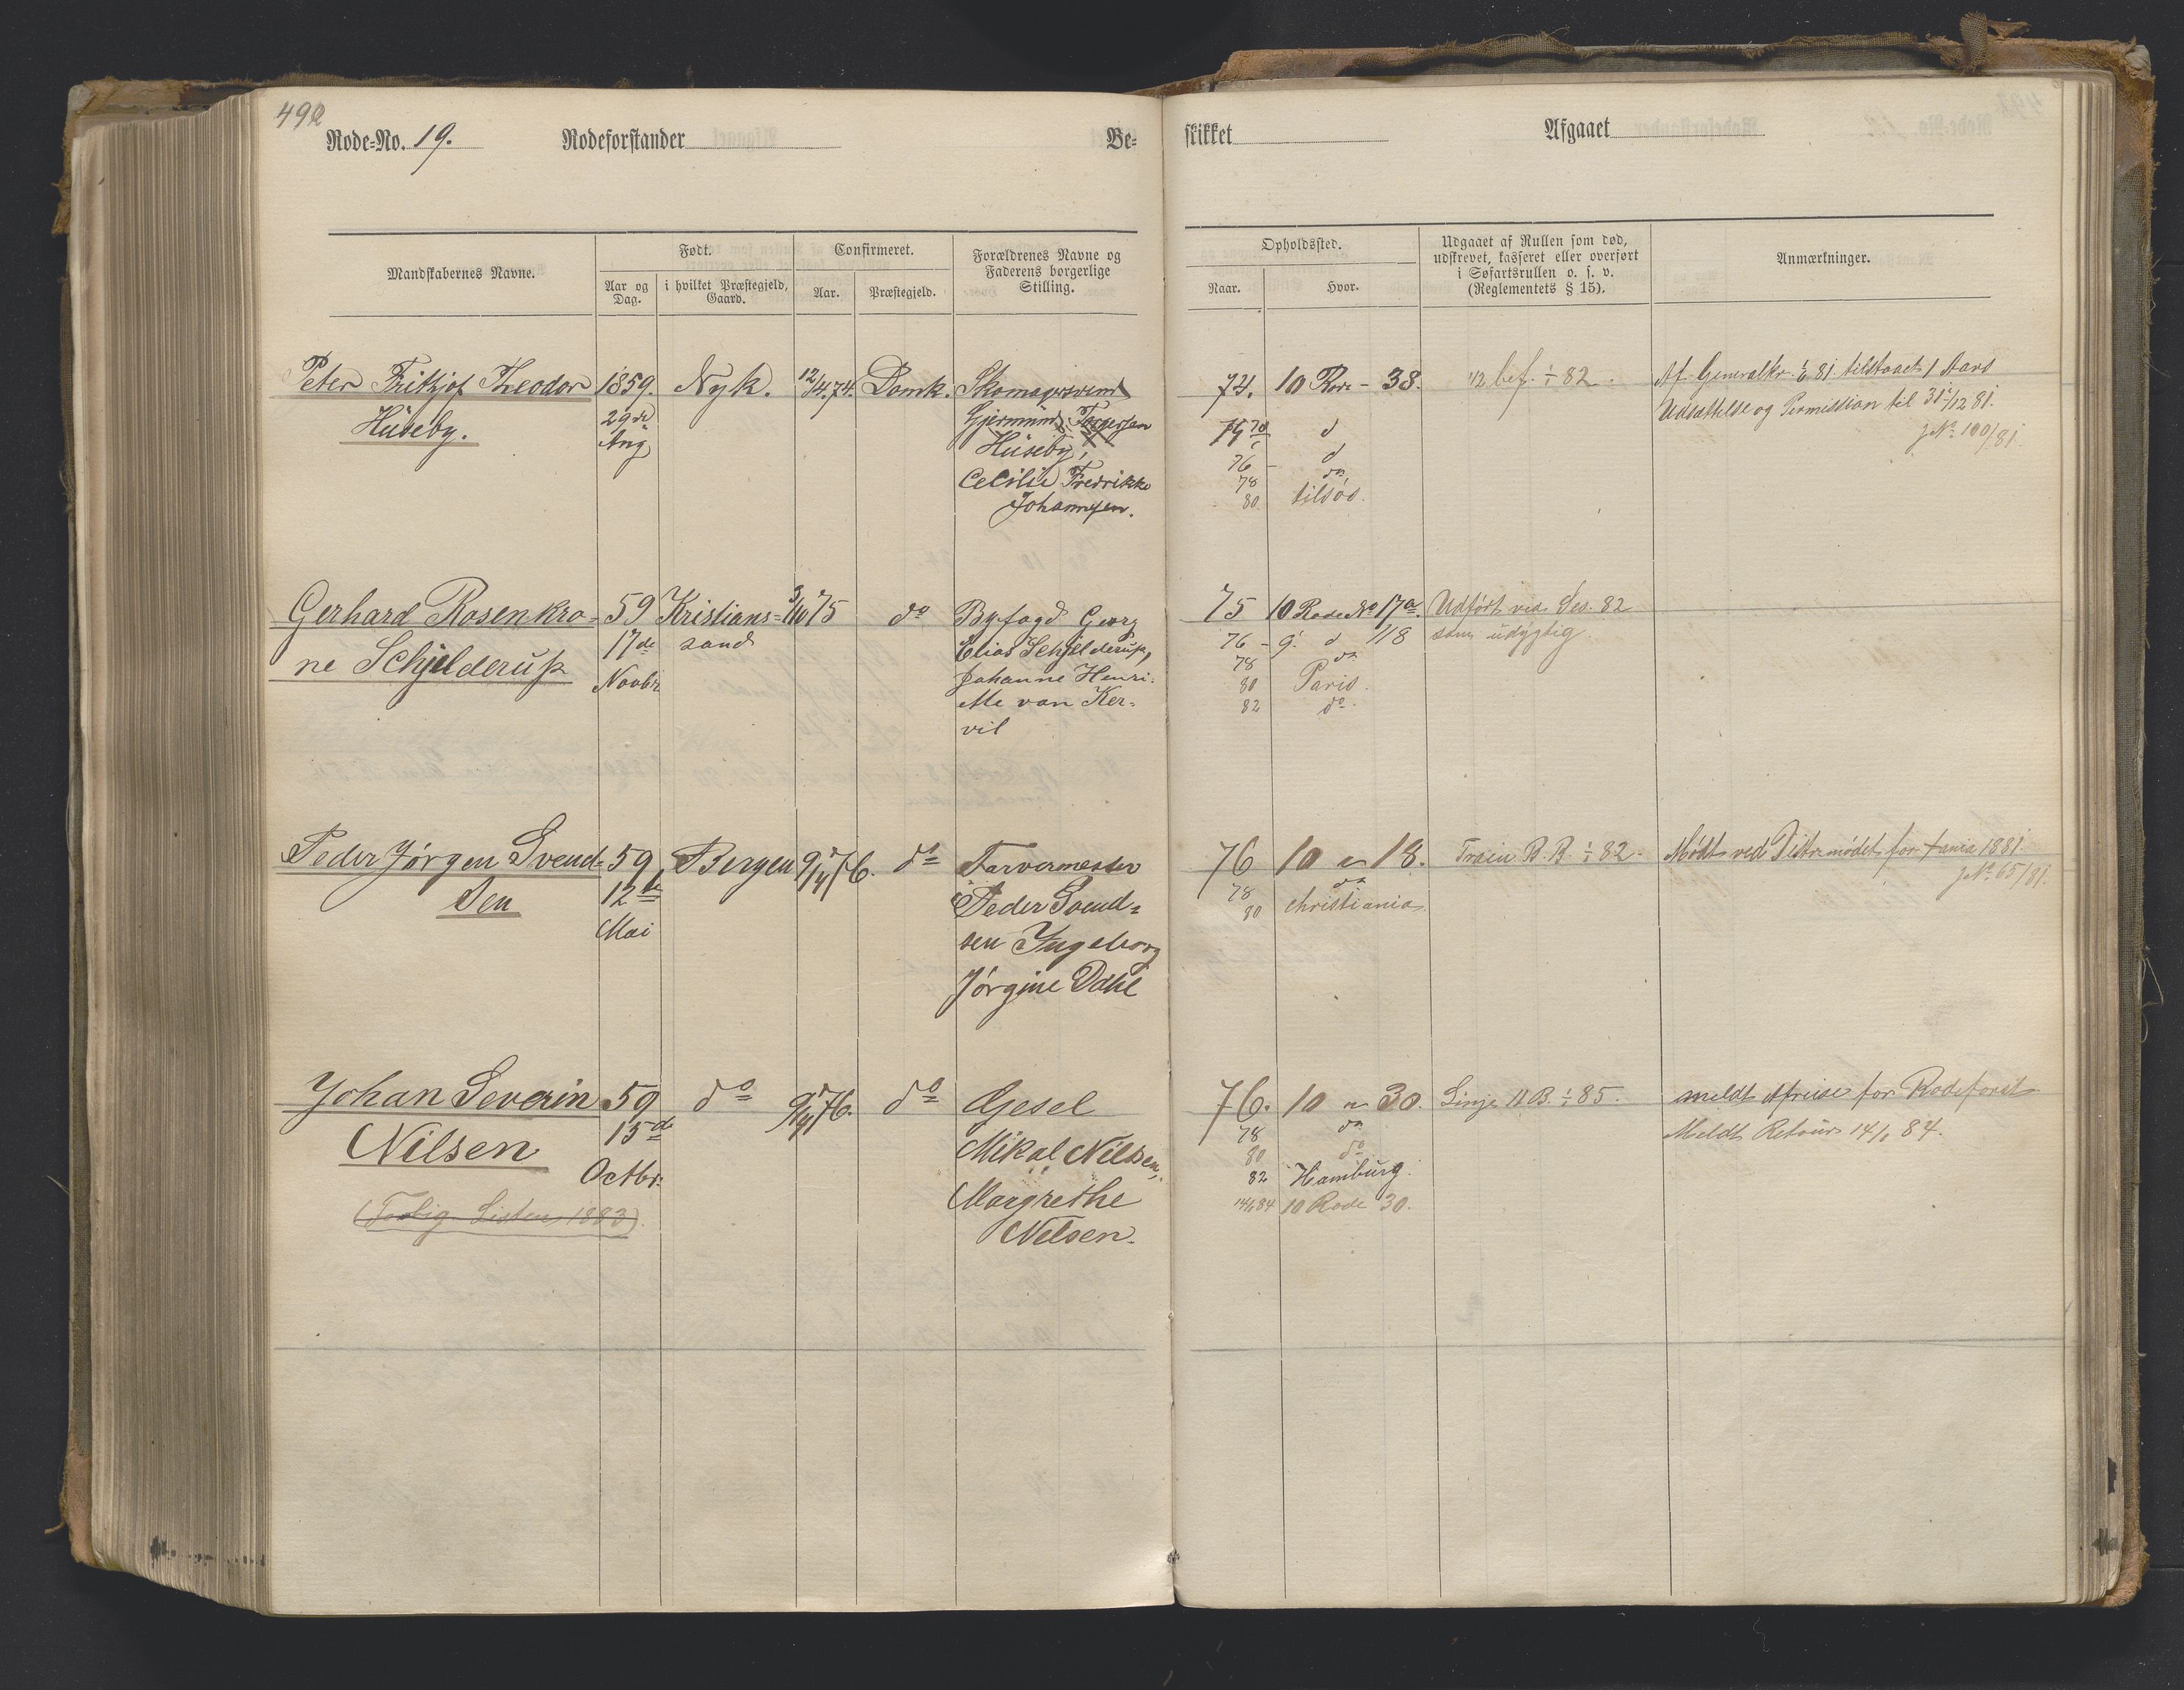 492
Rode-No. 19. Rodeforstander Be-
stikket Afgaaet
Mandskabernes Navne.
Født.
Aar og Dag.
i hvilket Præstegjeld, Gaard.
Confirmeret.
Aar.
Præstegjeld.
Forældrenes Navne og
Faderens borgerlige
Stilling.
Opholdssted.
Naar.
Hvor.
Udgaaet af Rullen som død,
udskrevet, kasseret eller overført
i Søfartsrullen o. s. v.
(Reglementets § 15).
Anmærkninger.
Peter Fritjof Theodor 1859. Nyk. 12/4.74. Domk.
Huseby. 29de Aug
Gjermund Torgersen
Huseby,
Cecilie Fredrikke
Johannesen.
74. 10 Rode - 38.
76 - d
78 do
80 tilsøs.
82.
Af Generalkr. 81. tilstaaet 1 Aars
Udsættelse og Permission til 31/12 81.
J.No. 100/81.
Gerhard Rosenkro- 59 Kristians- 3/10 75 do
ne Schjelderup 17de sand
Novbr
Byfogd Georg
Elias Schjelderup,
Johanne Henri-
ette van Ker-
vil
75 10 Rode No 17a
76 - 9. d 118
78 do
80 Paris.
82 do.
Udført ved Ses. 82
som udygtig
Peder Jørgen Svend- 59 Bergen 9/4 76. do
sen 12te
Mai
Farvermester
Peder Svend-
sen Ingeborg
Jørgine Dahl
76 10 " 18.
78 do
80 Christiania
Train B. B. 82.
Mødt ved Distr. mødet for 1881.
J.No. 65/81.
Johan Severin 59 do 9/4 76. do
Nilsen 15de
Octbr.
Gesel
Mikal Nilssen,
Margrethe
Nilsen.
76. 10 " 30.
78 do
80 do
82 Hamburg.
84 10 Rode 30.
Linje 85.
meldt Afreise for Rodeforst.
Meldt Retour 84.